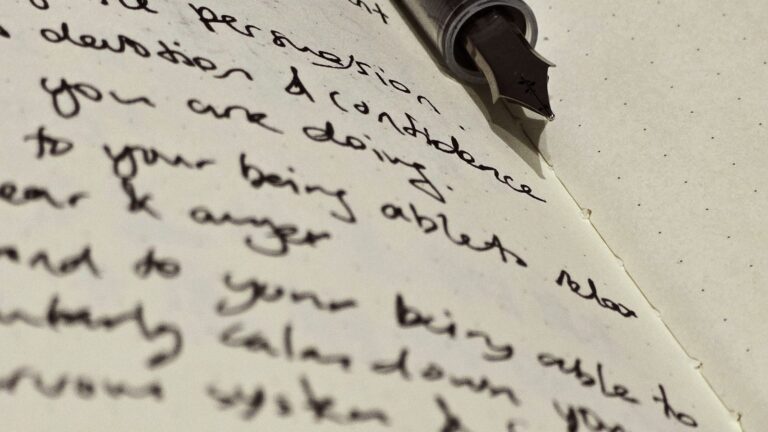 persuasion.
devotion & confidence
you are doing.
to your being able to relax
ear & anger
and to your being able to
calm down you
system &